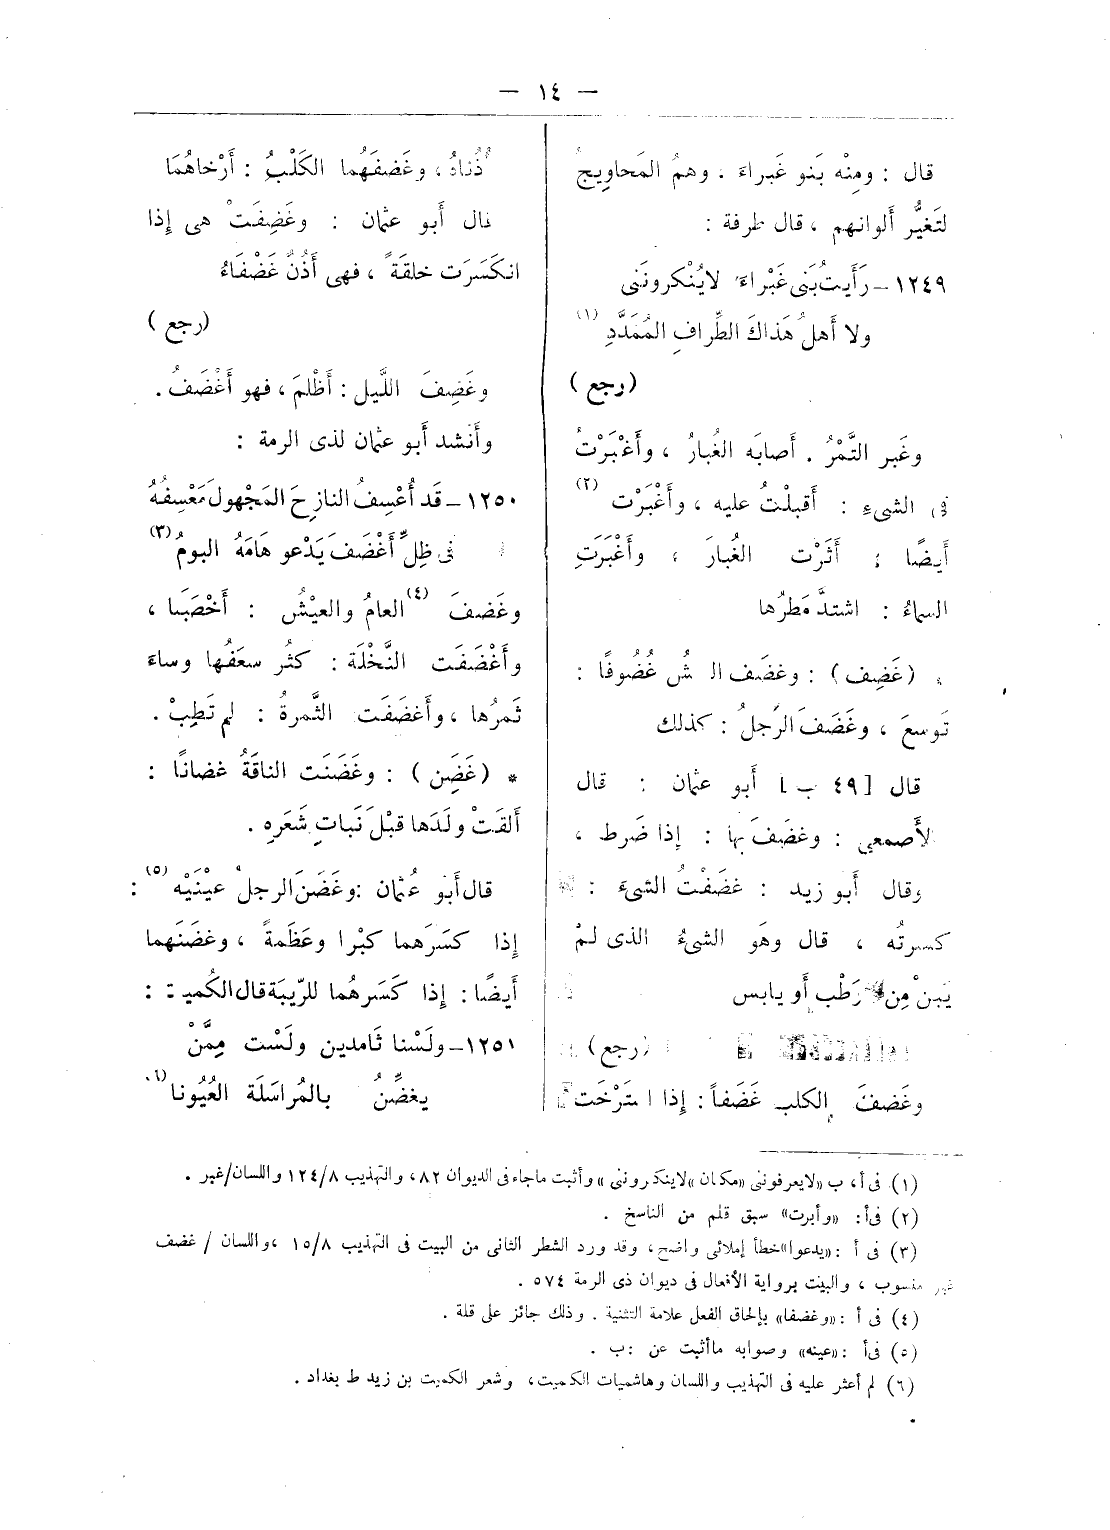 — ١٤ —
قال : ومِنْه بَنو غَبراءَ . وهمُ المَحاويجُ
لتَغيُّر ألوانهم ، قال طرفة :
١٢٤٩ – رَأَيتُ بَنى غَبْراءَ لايُنْكرونَنى
ولا أَهلُ هَذاكَ الطِّرافِ المُمَدَّدِ (١)
(رجع)
وغَبر التَّمْرُ . أصابَه الغُبارُ ، وأَغْبَرْتُ
فى الشىءِ : أَقبلْتُ عليه ، وأَغْبَرْت (٢)
أَيضًا ؛ أَثَرْت الغُبارَ ، وأَغْبَرَتِ
السماءُ : اشتدَّ مَطرُها
(غَضِف) : وغضَف الـ ش غُضُوفًا :
تَوسعَ ، وغَضَفَ الرَجلُ : كذلك
قال [ ٤٩ ب ] أبو عثمان : قال
الأَصمعى : وغضَفَ بها : إذا ضَرط ،
وقال أَبو زيد : غضَفْتُ الشىءَ :
كسرتُه ، قال وهَو الشىءُ الذى لمْ
يَبنْ مِن رَطْب أَو يابس
(رجع)
وغَضفَ الكلب غَضَفاً : إذا استَرْخَتْ
أُذُناهُ ، وغَضفَهُما الكَلْبُ : أَرْخاهُمَا
قال أَبو عثمان : وغَضِفَتْ هى إِذا
انكَسَرَت خلقَةً ، فهى أُذُنٌ غَضْفَاءُ
(رجع)
وغَضِفَ اللَّيل : أَظْلمَ ، فهو أَغْضَفُ .
وأَنشد أَبو عثمان لذى الرمة :
١٢٥٠ – قَد أُعْسِفُ النازحَ المَجْهولَ مَعْسِفُهُ
فى ظِلِّ أَغْضَفَ يَدْعو هَامَهُ البومُ (٣)
وغَضفَ (٤) العامُ والعيْشُ : أَخْصَبا ،
وأَغْضَفَت النَّخْلَة : كثُر سعَفُها وساءَ
ثَمرُها ، وأَغضَفَت الثَّمرةُ : لم تَطِبْ .
* (غَضَن) : وغَضَنَت الناقَةُ غضانًا :
أَلقَتْ ولَدَها قبْلَ نَباتِ شَعَرِه .
قال أَبو عُثمان : وغَضَنَ الرجلُ عينَيْه (٥) :
إذا كسَرَهما كبْرا وعَظَمةً ، وغضَنَهما
أيضًا : إذا كَسَرهُما للرِّيبَة قال الكُميت :
١٢٥١ – ولَسْنا ثَامدين ولَسْت مِمَّنْ
يغضِّنُ بالمُراسَلَة العُيُونا (٦)
(١) فى أ ، ب «لايعرفوننى» مكان «لاينكروننى» وأثبت ماجاء فى الديوان ٨٢ ، والتهذيب ١٢٤/٨ واللسان/غبر .
(٢) فى أ : «وأبرت» سبق قلم من الناسخ .
(٣) فى أ : «يدعوا» خطأ إملائى واضح ، وقد ورد الشطر الثانى من البيت فى التهذيب ١٥/٨ ، واللسان / غضف
غير منسوب ، والبيت برواية الأفعال فى ديوان ذى الرمة ٥٧٤ .
(٤) فى أ : «وغضفا» بإلحاق الفعل علامة التثنية . وذلك جائز على قلة .
(٥) فى أ : «عينه» وصوابه ماأثبت عن : ب .
(٦) لم أعثر عليه فى التهذيب واللسان وهاشميات الكميت ، وشعر الكميت بن زيد ط بغداد .